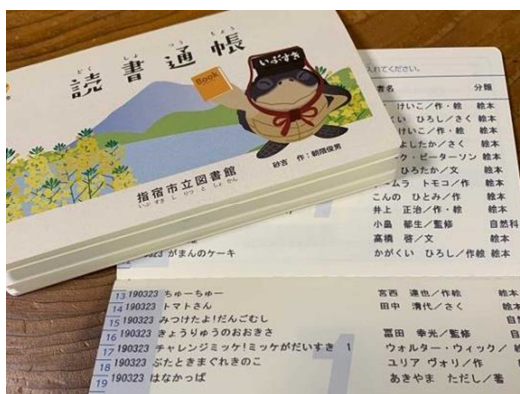 どくしょつうちょう
読書通帳
Book
いぶすき
指宿市立図書館
いぶすきしりつとしょかん
砂吉 作：朝隈俊男
入れてください。
者名 分類
けいこ／作・絵 絵本
くい ひろし／さく 絵本
けいこ／作・絵 絵本
よしたか／さく 絵本
ーク・ピーターソン 絵本
ひろたか／文 絵本
ームラ トモコ／作 絵本
こんの ひとみ／作 絵本
井上 正治／作・絵 絵本
小畠 郁生／監修 自然科
高橋 啓／文 絵本
がまんのケーキ かがくい ひろし／作絵 絵本
13 190323 ちゅーちゅー 宮西 達也／作絵 絵本
14 190323 トマトさん 田中 清代／さく 絵本
15 190323 みつけたよ！だんごむし 自
16 190323 きょうりゅうのおおきさ 冨田 幸光／監修 自
17 190323 チャレンジミッケ！ミッケがだいすき 1 ウォルター・ウィック／ 絵
18 190323 ぶたときまぐれきのこ ユリア ヴォリ／作
19 190323 はなかっぱ あきやま ただし／著